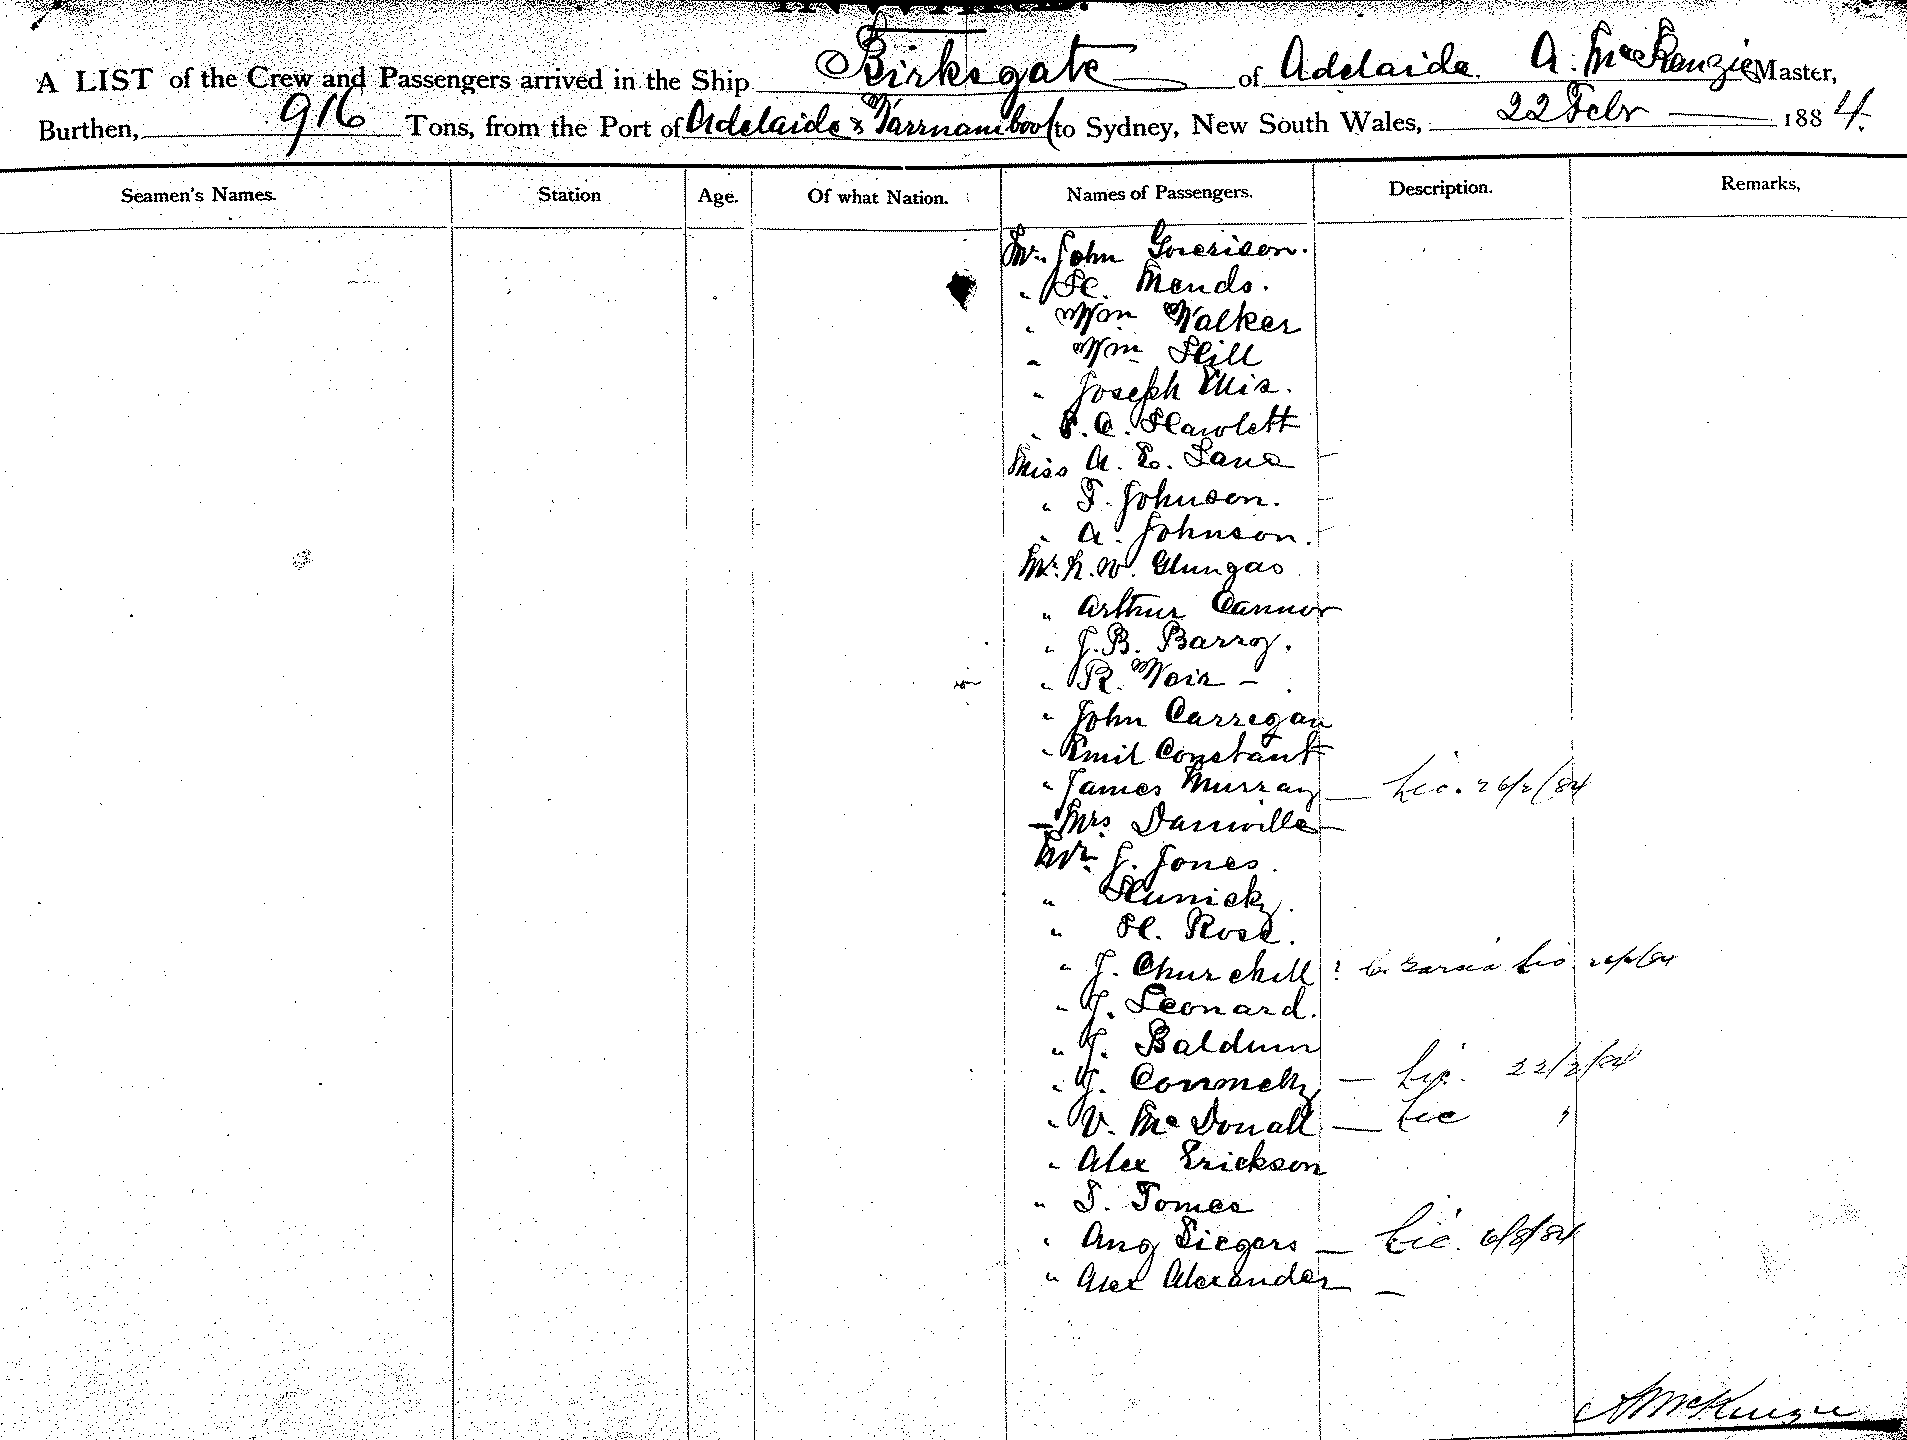 A LIST of the Crew and Passengers arrived in the Ship Birksgate of Adelaide. A. McKenzie Master,
Burthen, 916 Tons, from the Port of Adelaide & Warrnambool to Sydney, New South Wales, 22 Febr 1884.
Seamen's Names. Station Age. Of what Nation. Names of Passengers. Description. Remarks,
Mr. John
" H. Mends.
" Wm Walker
" Wm Hill
" Joseph Ellis.
" C. Hawlett
Miss A. E. Lane
" F. Johnson.
" A. Johnson.
Mr. W.
" Arthur Cannor
" J. B. Barry.
" R. Weir
" John Carregan
" Emil Constant
" James Murray Lic. 26/2/84
Mrs Damville
Mr. J. Jones.
" Hunicky.
" H. Rose.
" J. Churchill ?
" J. Leonard.
" J. Baldwin
" J. Lic. 22/2/84
" V. McDonall Lic "
" Alex Erickson
" T. Tomes
" Aug Siegers Lic.
" Alex Alexander
A McKenzie